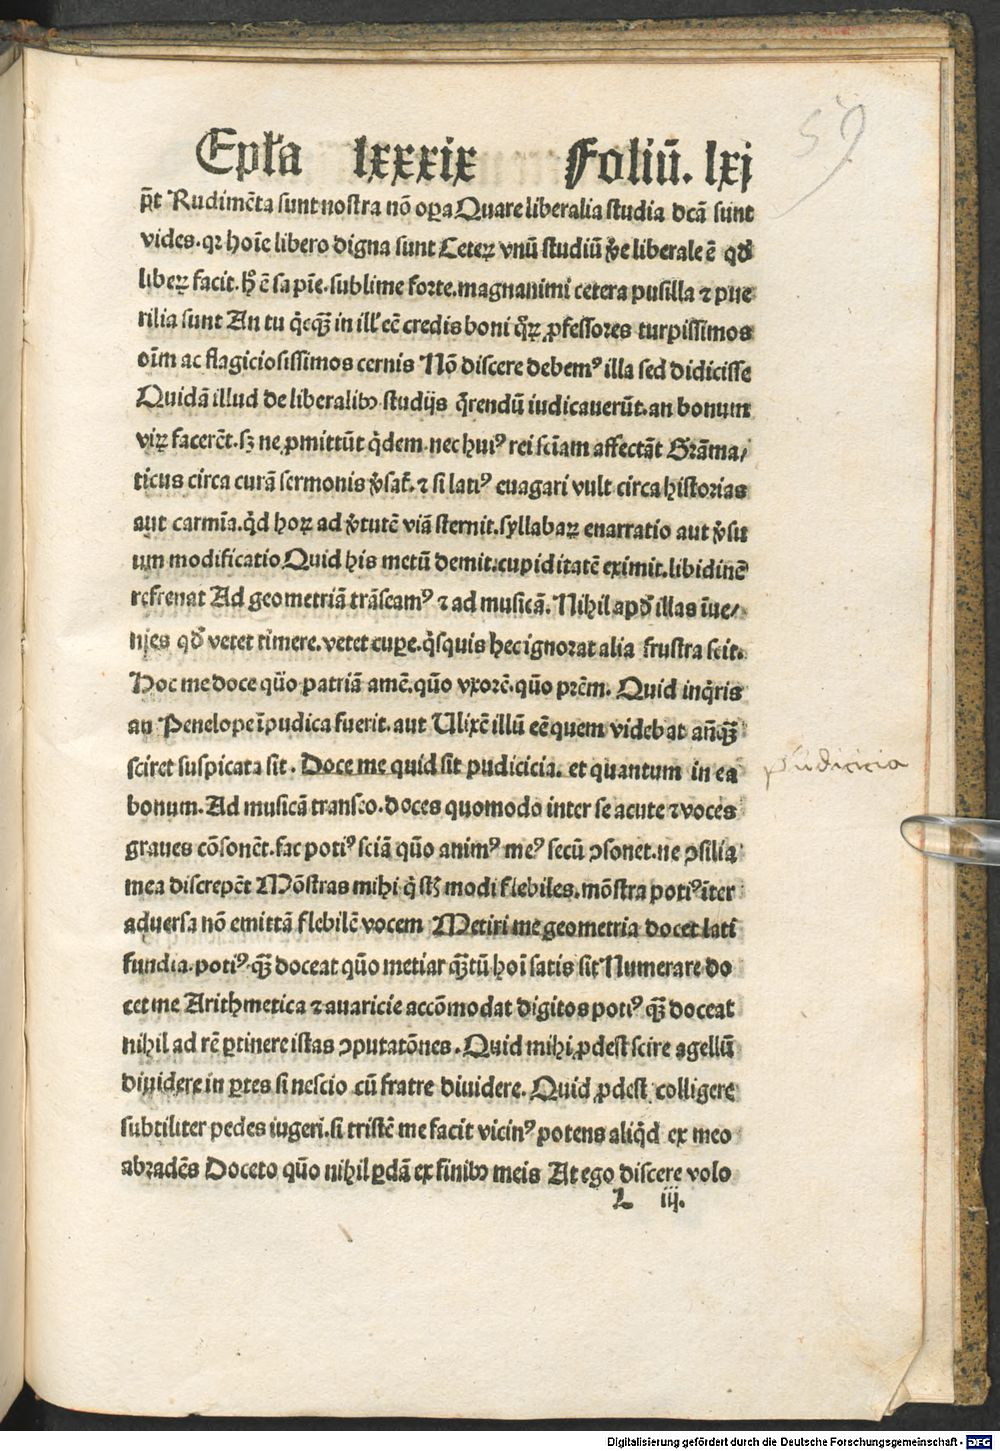 59
Epl̄a lxxxix Foliū. lxj
p̄t Rudimēta sunt nostra nō oꝑa Quare liberalia studia dcā sunt
vides. qꝛ hoīe libero digna sunt Ceteꝝ vnū studiū v̓e liberale ē qd̓
libeꝝ facit. h̓ ē sapīe. sublime forte. magnanimi cetera pusilla ⁊ pue
rilia sunt An tu q̇cꝗ̄ in ill' eē credis boni q̊ꝝ ꝓfessores turpissimos
oīm ac flagiciosissimos cernis Nō discere debemꝰ illa sed didicisse
Quidā illud de liberalibꝫ studijs q̄rendū iudicauerūt. an bonum
viꝝ facerēt. sꝫ ne ꝓmittūt q̇dem nec huiꝰ rei sciam affectāt Grāma/
ticus circa curā sermonis v̓saṫ. ⁊ si latiꝰ euagari vult circa historias
aut carmīa. q̇d hoꝝ ad v̓tutē viā sternit. syllabaꝝ enarratio aut v̓su
um modificatio Quid his metū demit. cupiditatē eximit. libidinē
refrenat Ad geometriā trāseamꝰ ⁊ ad musicā. Nihil apd̓ illas īue/
nies qd̓ vetet timere. vetet cuꝑe. q̇squis hec ignorat alia frustra scit.
Hoc me doce qūo patriā amē. qūo vxorē. qūo prēm. Quid inq̇ris
an Penelope īpudica fuerit. aut Ulixē illū eē quem videbat añꝗ̄
sciret suspicata sit. Doce me quid sit pudicicia. et quantum in ea
bonum. Ad musicā transeo. doces quomodo inter se acute ⁊ voces
graues cōsonēt. fac potiꝰ sciā qūo animꝰ meꝰ secū ꝯsonet. ne ꝯsilia
mea discrepēt Mōstras mihi q̇ st̄ modi flebiles. mōstra potiꝰ īter
aduersa nō emittā flebilē vocem Metiri me geometria docet lati
fundia. potiꝰ ꝗ̄ doceat qūo metiar ꝗ̄tū hoī satis sit Numerare do
cet me Arithmetica ⁊ auaricie accōmodat digitos potiꝰ ꝗ̄ doceat
nihil ad rē ꝑtinere istas ꝯputatōnes. Quid mihi ꝓdest scire agellū
diuidere in ꝑtes si nescio cū fratre diuidere. Quid ꝓdest colligere
subtiliter pedes iugeri. si tristē me facit vicinꝰ potens aliq̇d ex meo
abradēs Doceto qūo nihil ꝑdā ex finibꝫ meis At ego discere volo
L iij.
pudicicia
Digitalisierung gefördert durch die Deutsche Forschungsgemeinschaft - DFG